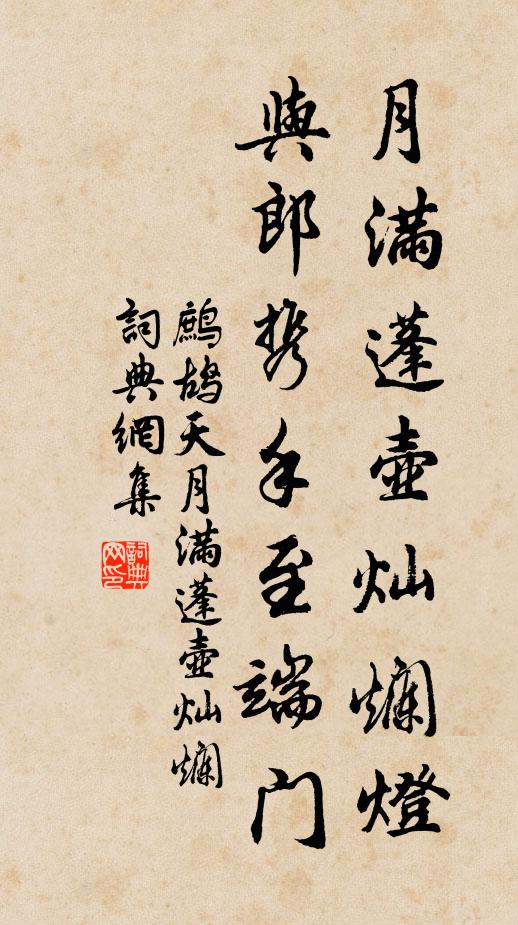 月滿蓬壺灿爛燈
與郎携手至端门
鷓鴣天月滿蓬壺灿爛
詞典網集
詞典网印